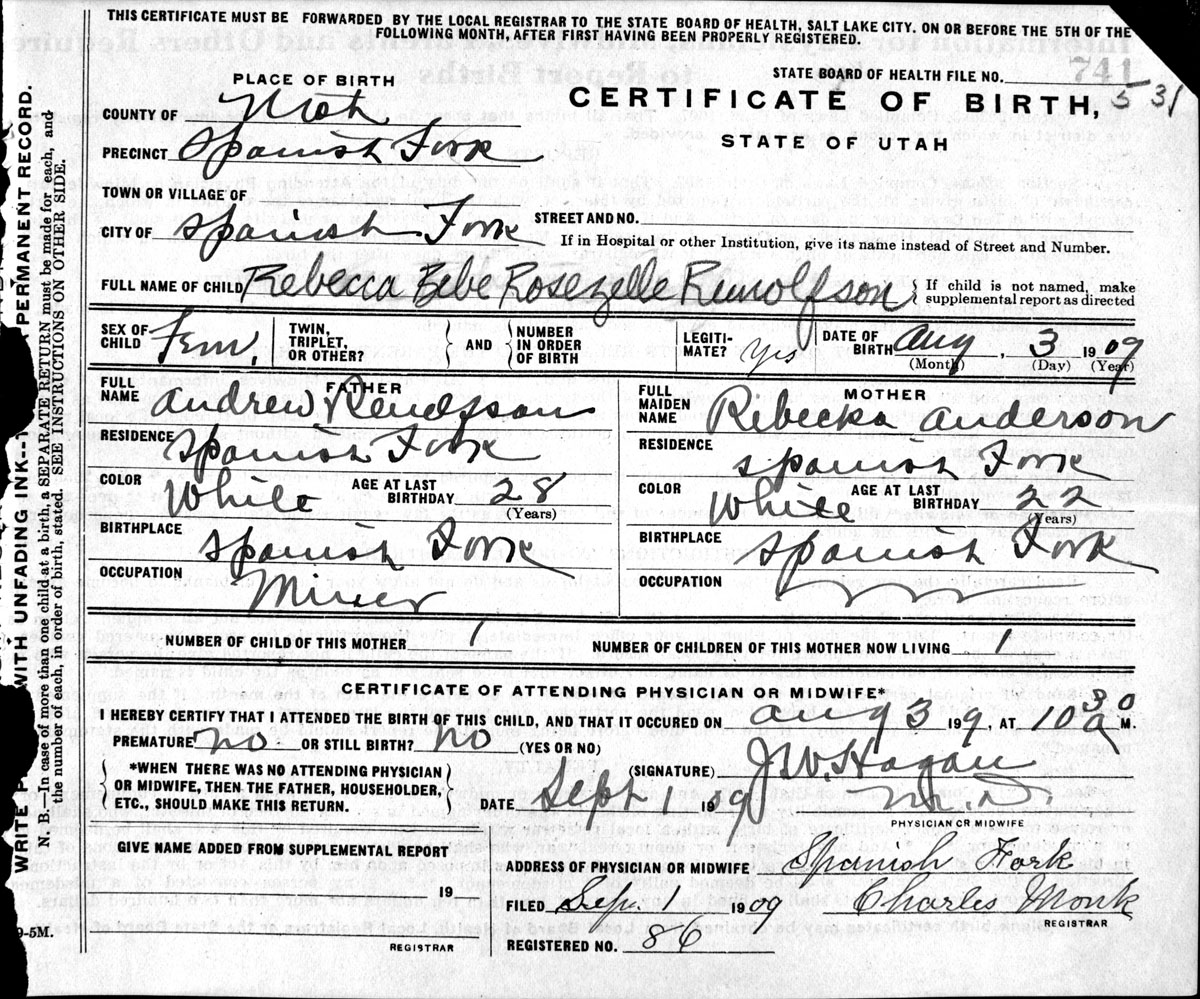 THIS CERTIFICATE MUST BE FORWARDED BY THE LOCAL REGISTRAR TO THE STATE BOARD OF HEALTH, SALT LAKE CITY, ON OR BEFORE THE 5TH OF THE
FOLLOWING MONTH, AFTER FIRST HAVING BEEN PROPERLY REGISTERED.
PLACE OF BIRTH
STATE BOARD OF HEALTH FILE NO. 741
CERTIFICATE OF BIRTH, 5 31
STATE OF UTAH
COUNTY OF Utah
PRECINCT Spanish Fork
TOWN OR VILLAGE OF
CITY OF Spanish Fork
STREET AND NO.
If in Hospital or other Institution, give its name instead of Street and Number.
FULL NAME OF CHILD Rebecca Bebe Rosezelle
If child is not named, make
supplemental report as directed
SEX OF CHILD Fem. TWIN, TRIPLET, OR OTHER? AND NUMBER IN ORDER OF BIRTH LEGITI-MATE? Yes DATE OF BIRTH Aug, 3 1909
(Month) (Day) (Year)
FATHER
FULL NAME Andrew
RESIDENCE Spanish Fork
COLOR White AGE AT LAST BIRTHDAY 28
(Years)
BIRTHPLACE Spanish Fork
OCCUPATION Miner
MOTHER
FULL MAIDEN NAME Rebecka Anderson
RESIDENCE Spanish Fork
COLOR White AGE AT LAST BIRTHDAY 22
(Years)
BIRTHPLACE Spanish Fork
OCCUPATION
NUMBER OF CHILD OF THIS MOTHER 1 NUMBER OF CHILDREN OF THIS MOTHER NOW LIVING 1
CERTIFICATE OF ATTENDING PHYSICIAN OR MIDWIFE*
I HEREBY CERTIFY THAT I ATTENDED THE BIRTH OF THIS CHILD, AND THAT IT OCCURED ON Aug 3 199, AT 10 30 a M.
PREMATURE? no OR STILL BIRTH? no (YES OR NO)
*WHEN THERE WAS NO ATTENDING PHYSICIAN
OR MIDWIFE, THEN THE FATHER, HOUSEHOLDER,
ETC., SHOULD MAKE THIS RETURN.
(SIGNATURE) J.W. Hagan
DATE Sept 1 199 M.D.
PHYSICIAN OR MIDWIFE
GIVE NAME ADDED FROM SUPPLEMENTAL REPORT
19
REGISTRAR
ADDRESS OF PHYSICIAN OR MIDWIFE Spanish Fork
FILED Sep. 1 1909 Charles Monk
REGISTRAR
REGISTERED NO. 86
WITH UNFADING INK--
PERMANENT RECORD.
WRITE P
N. B.—In case of more than one child at a birth, a SEPARATE RETURN must be made for each, and
the number of each, in order of birth, stated. SEE INSTRUCTIONS ON OTHER SIDE.
9-5M.